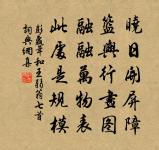 曉日開屏障
籃輿行畫圖
融融萬物表
此處是規模
彭龜年和王弱翁七首
詞典網集